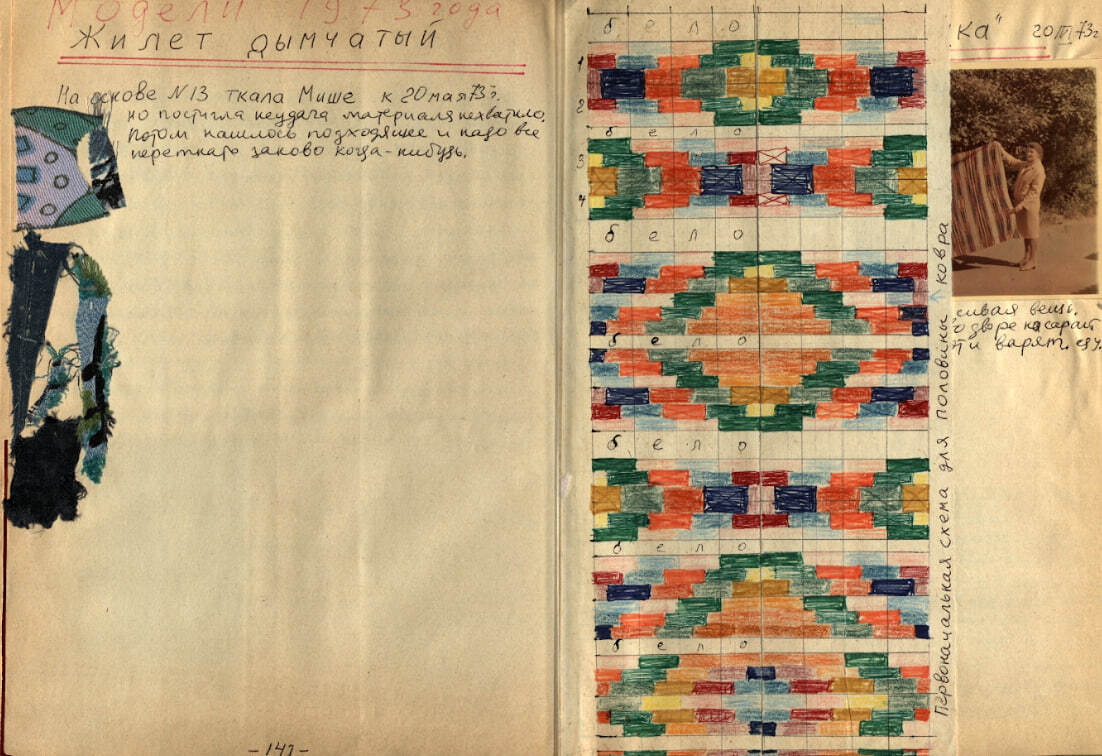 Модели 1973 года
Жилет дымчатый
На основе N13 ткала Мише к 20 мая 73 г.
но постигла неудача материала нехватило.
Потом нашлось подходящее и надо все
переткать заново когда-нибудь.
-143-
бело
1
2
бело
3
4
бело
бело
бело
бело
бело
Первоначальная схема для половины ковра
ка" 20 73г
сивая вещь.
во дворе
и варят